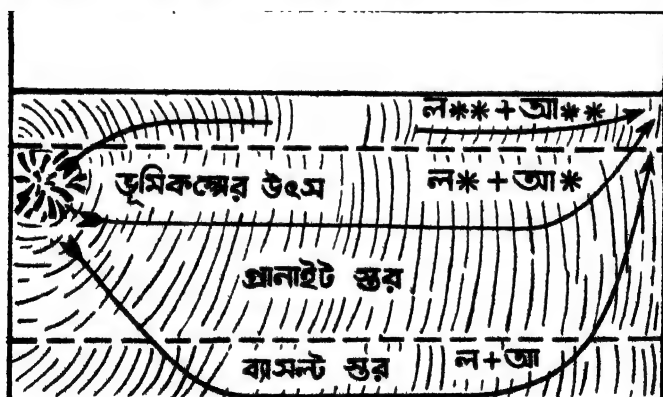 ল**+আ**
ভূমিকম্পের উৎস ল*+আ*
গ্রানাইট স্তর
ব্যাসল্ট স্তর ল+আ